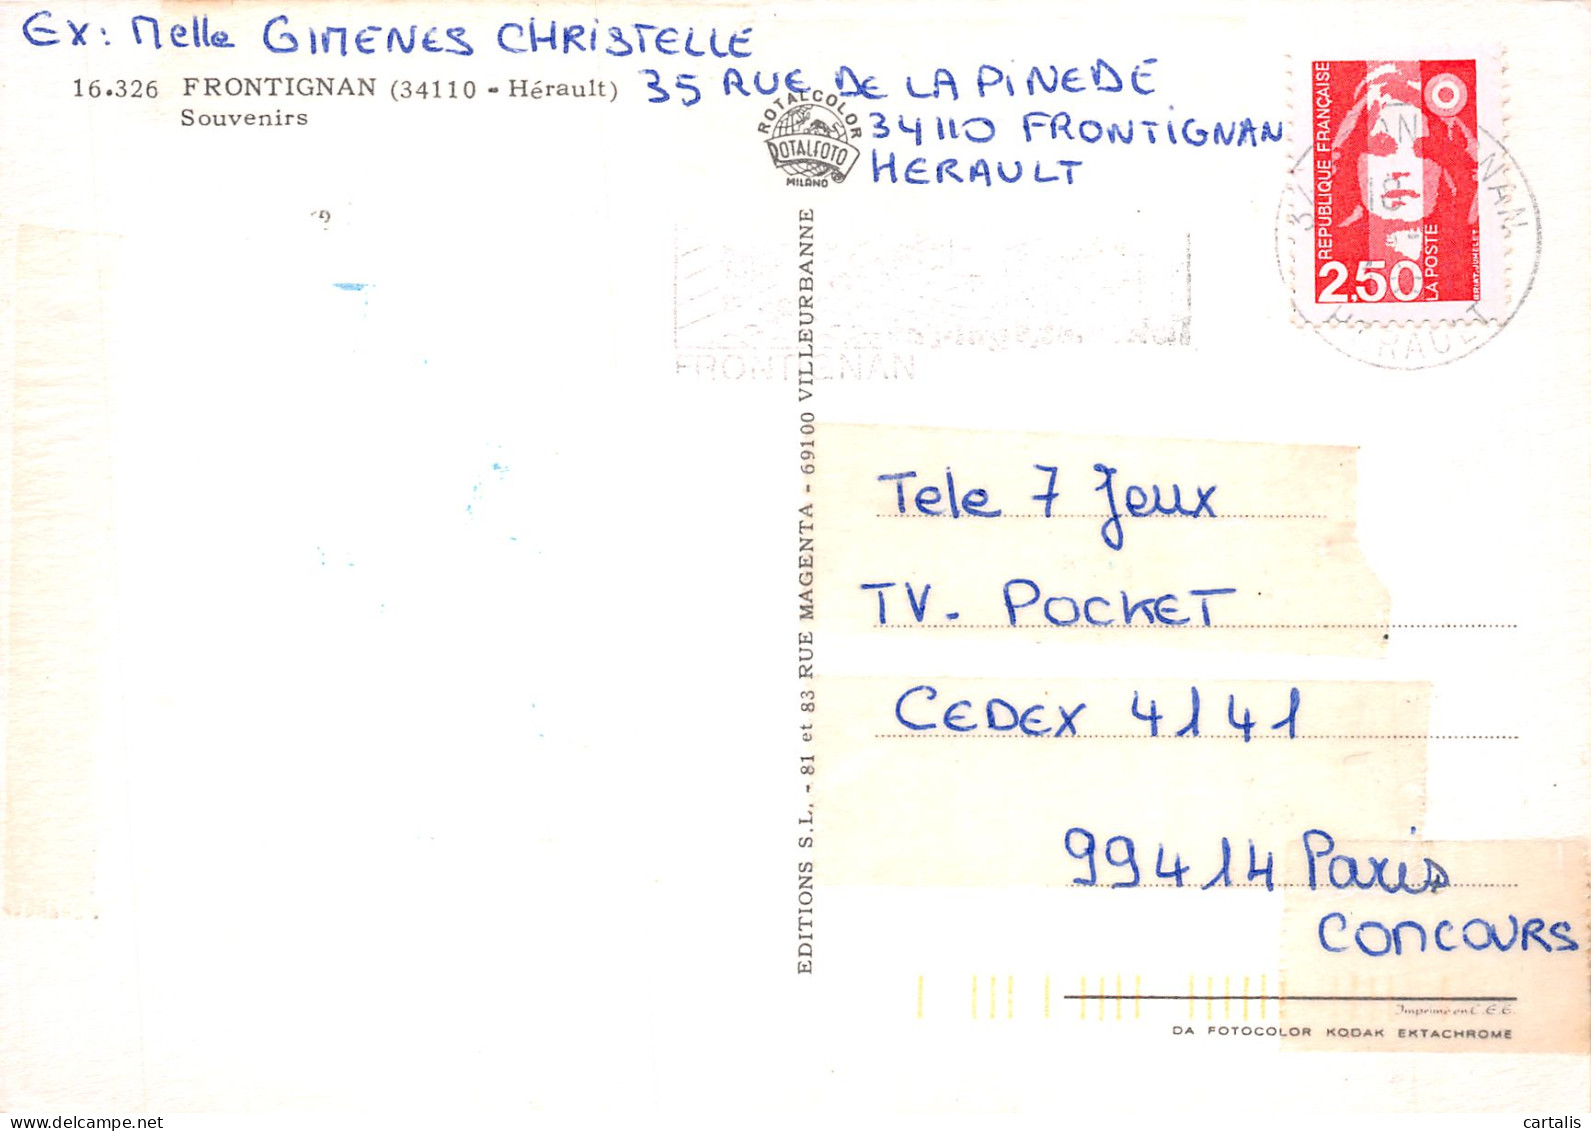 EX: Melle GIMENES CHRISTELLE
16.326 FRONTIGNAN (34110 - Hérault)
Souvenirs
35 RUE DE LA PINEDE
34110 FRONTIGNAN
HERAULT
ROTALCOLOR
ROTALFOTO
MILANO
REPUBLIQUE FRANÇAISE
2,50
LA POSTE
BRIAT-JUMELET
HERAULT
FRONTIGNAN
EDITIONS S.L. - 81 et 83 RUE MAGENTA - 69100 VILLEURBANNE
Tele 7 Jeux
TV. POCKET
CEDEX 4141
99414 Paris
CONCOURS
Imprimé en C.E.E.
DA FOTOCOLOR KODAK EKTACHROME
cartalis